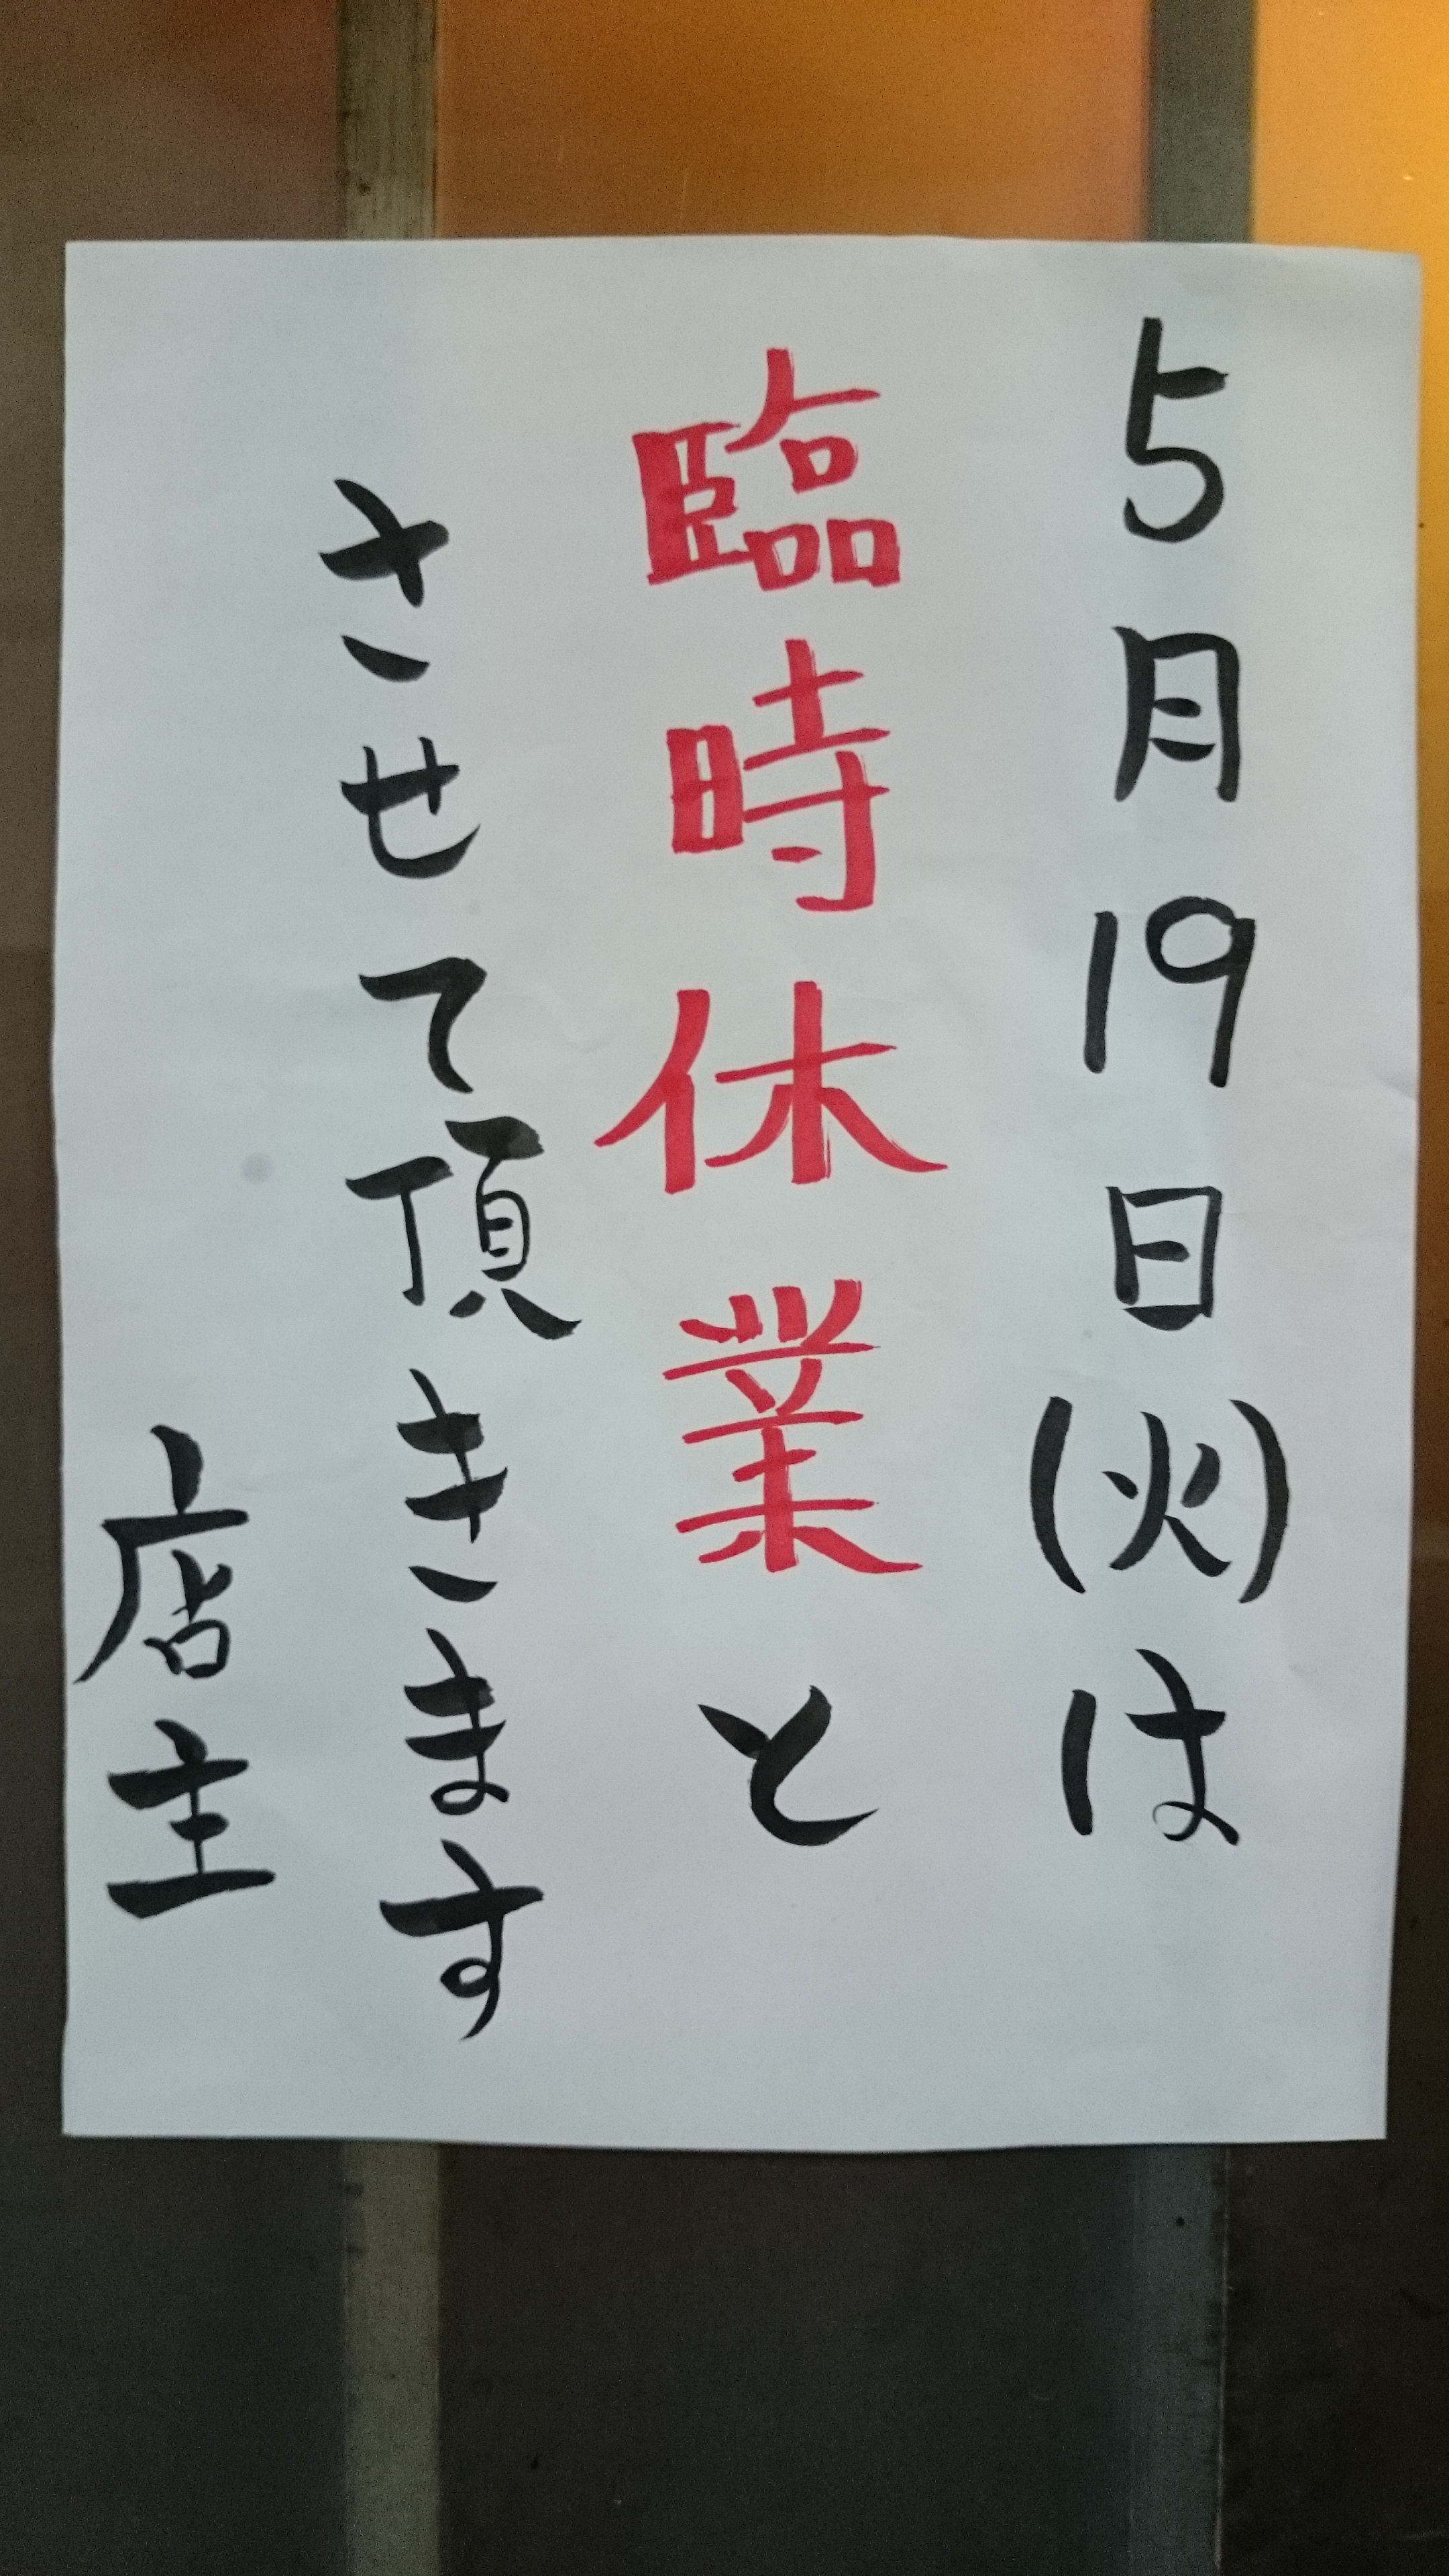 5月19日(火)は
臨時休業と
させて頂きます
店主